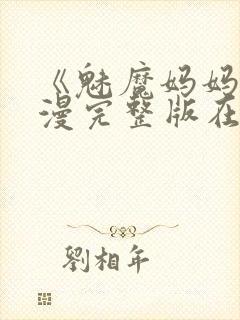 《魅魔妈妈
漫完整版在
劉相年